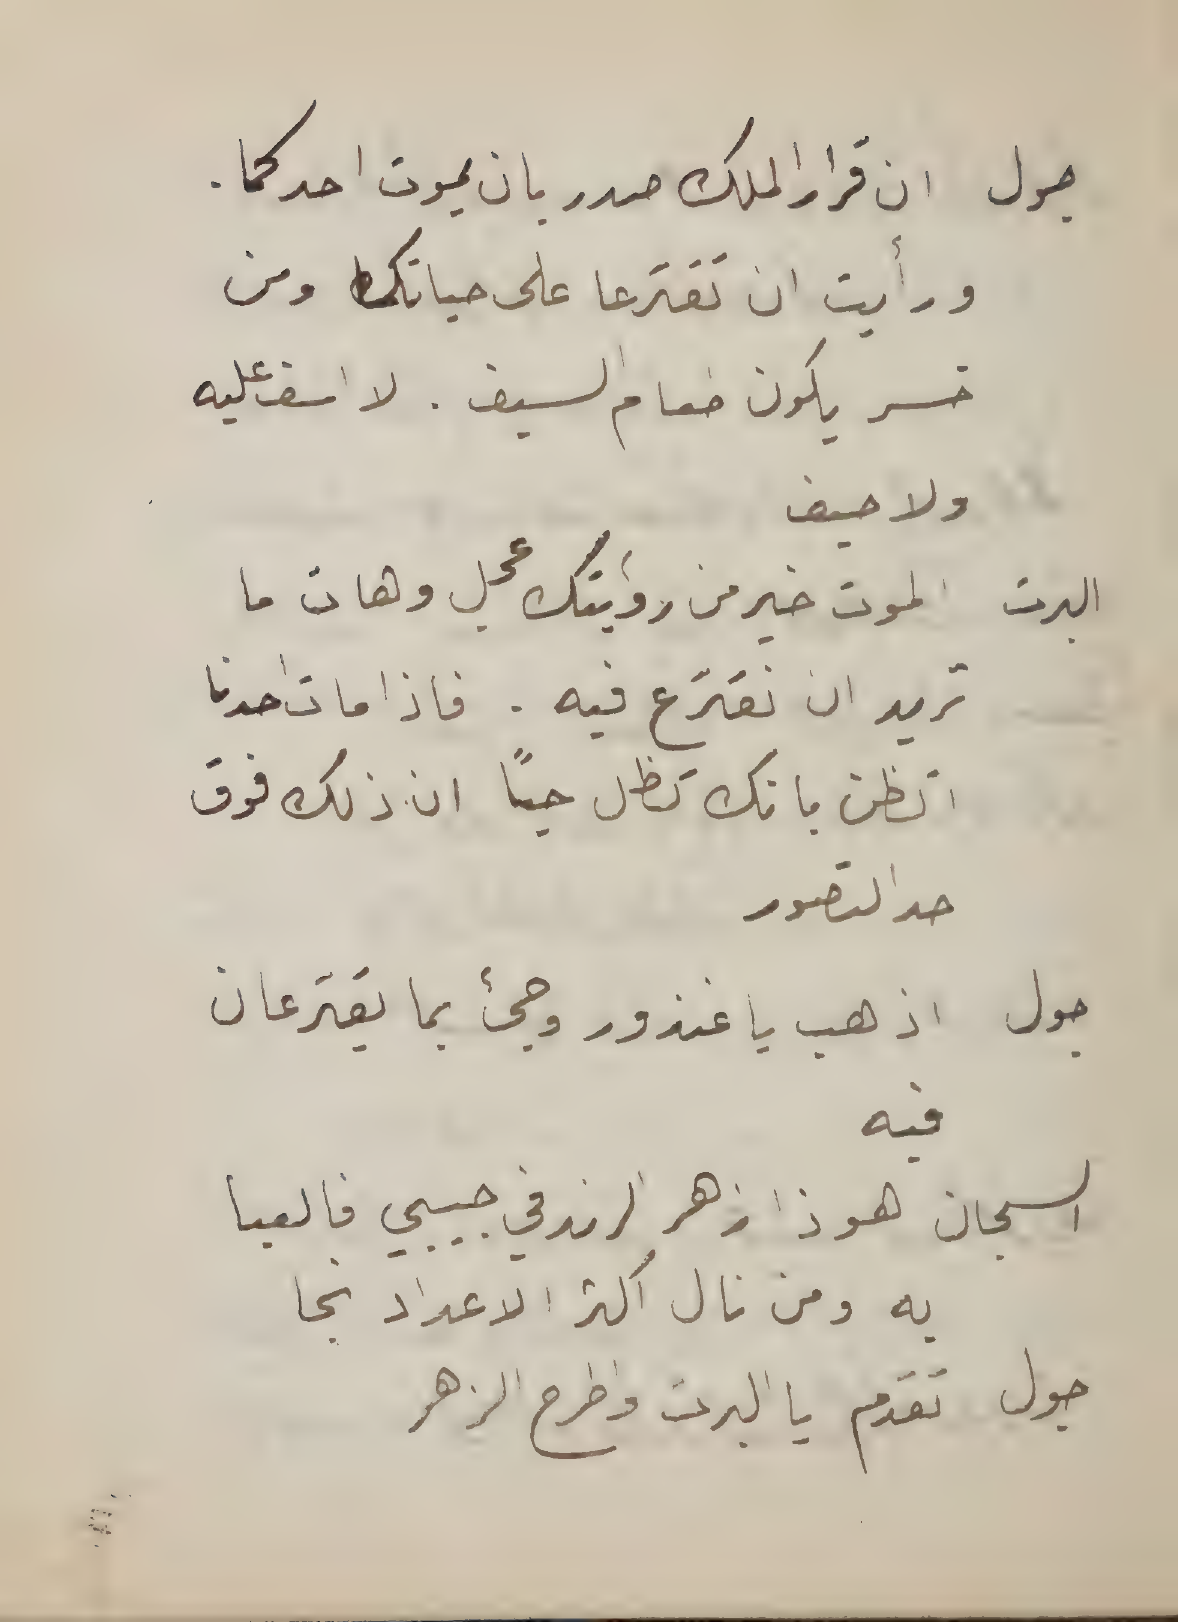 جول ان قرار الملك صدر بان يموت احدكما .
ورأيت ان تقترعا على حياتكما ومن
خسر يكون طعام السيف . لا اسف عليه
ولا حيف
البرت الموت خير من رؤيتك عجل وهات ما
تريد ان نقترع فيه . فاذا مات احدنا
اتظن بانك تظل حيًا ان ذلك فوق
حد التصور
جول اذهب يا غندور وجئ بما يقترعان
فيه
السجان هوذا زهر النرد في جيبي فالعبا
به ومن نال اكثر الاعداد نجا
جول تقدم يا البرت واطرح الزهر